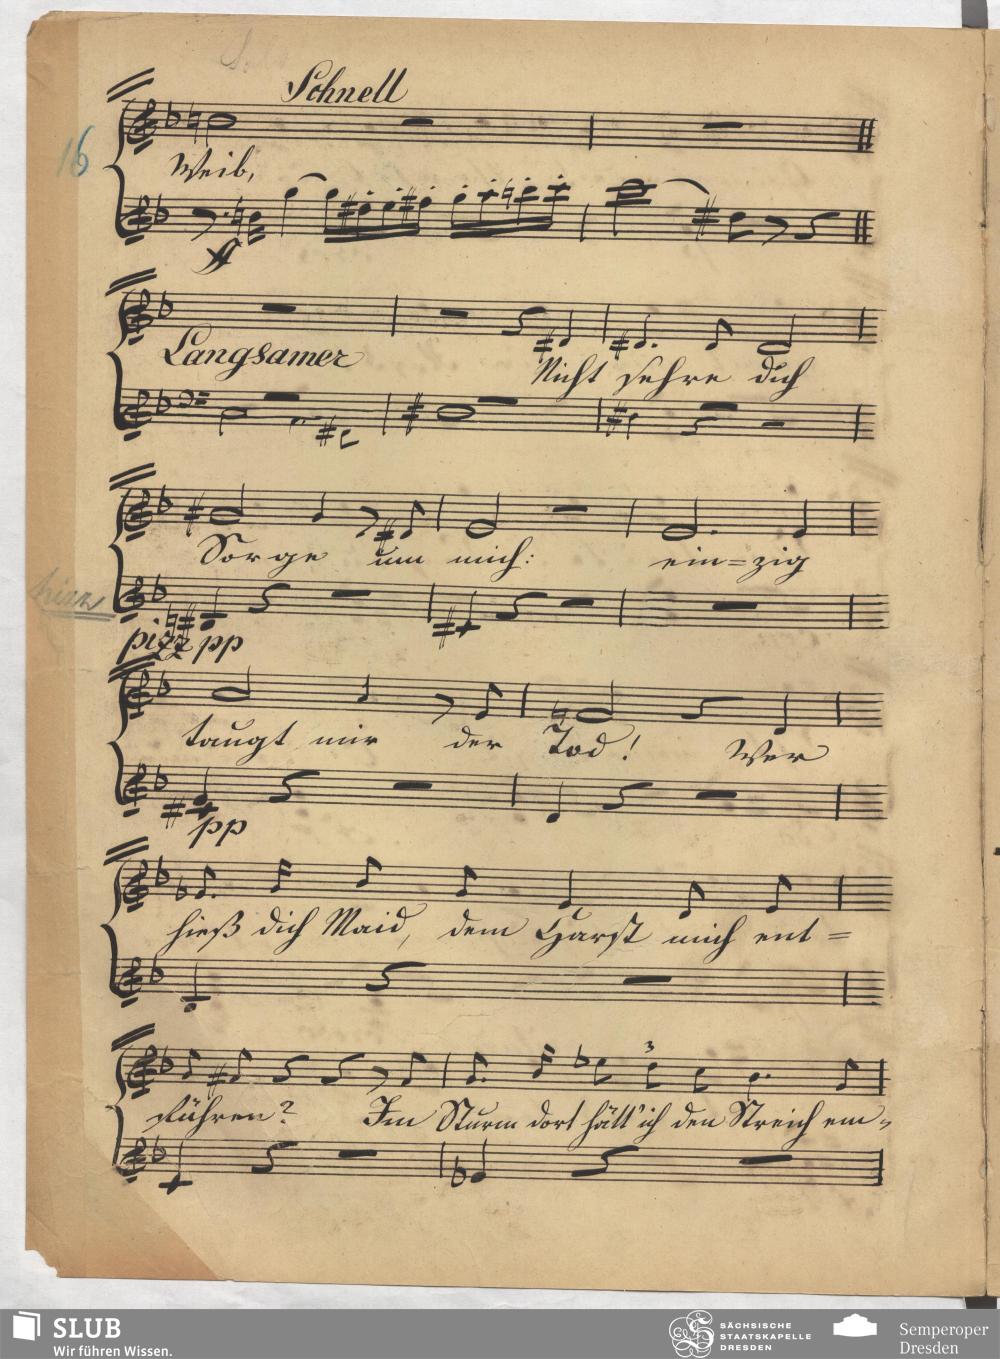 Schnell
16
Weib,
ff
Langsamer
Nicht sehre dich
Sorge um mich: ein=zig
pizz pp
taugt mir der Tod! Wer
pp
hieß dich Maid, dem Harst mich ent=
führen?
3
Im Sturm dort hätt' ich den Streich em=
SLUB
Wir führen Wissen.
SÄCHSISCHE
STAATSKAPELLE
DRESDEN
Semperoper
Dresden